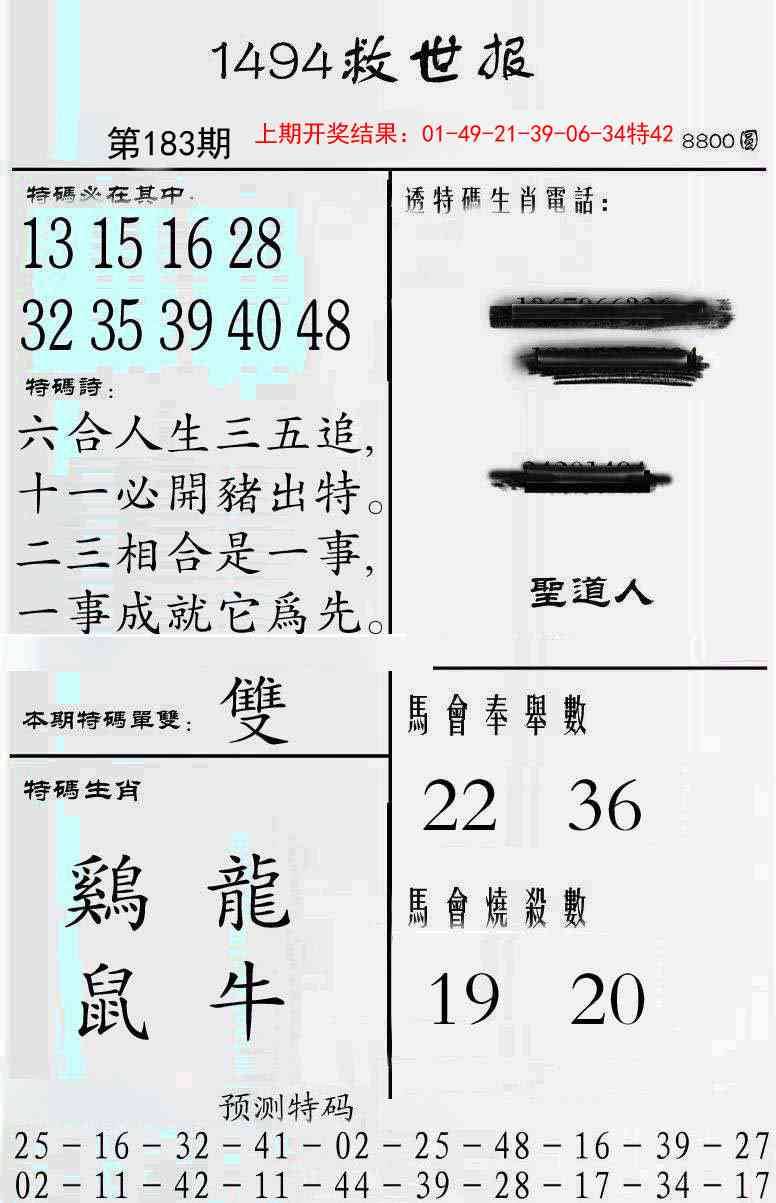 1494救世报
第183期 上期开奖结果：01-49-21-39-06-34特42 8800圓
特碼必在其中.
13 15 16 28
32 35 39 40 48
特碼詩：
六合人生三五追，
十一必開豬出特。
二三相合是一事，
一事成就它爲先。
透特碼生肖電話：
聖道人
本期特碼單雙：雙
特碼生肖
鷄 龍
鼠 牛
馬會奉舉數
22 36
馬會燒殺數
19 20
预测特码
25－16－32－41－02－25－48－16－39－27
02－11－42－11－44－39－28－17－34－17